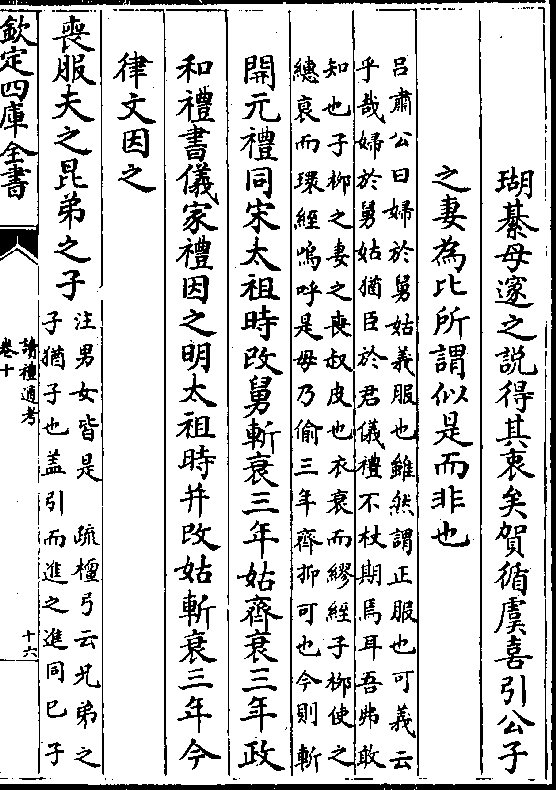 瑚綦母邃之説得其衷矣賀循虞喜引公子
之妻為比所謂似是而非也
吕肅公曰婦於舅姑義服也雖然謂正服也可義云
乎哉婦於舅姑猶臣於君儀禮不杖期焉耳吾弗敢
知也子栁之妻之喪叔皮也衣衰而繆絰子栁使之
繐衰而環絰嗚呼是毋乃偷三年齊抑可也今則斬
開元禮同宋太祖時改舅斬衰三年姑齊衰三年政
和禮書儀家禮因之明太祖時并改姑斬衰三年今
律文因之
喪服夫之昆弟之子
注男女皆是 疏檀弓云兄弟之
子猶子也盖引而進之進同己子
欽定四庫全書
讀禮通考
卷十
十六